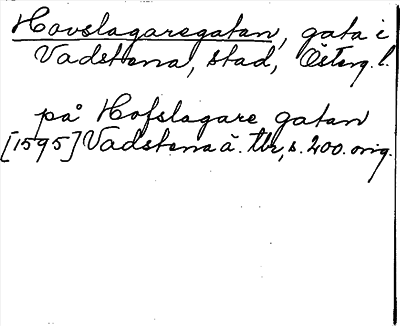 Hovslagaregatan, gata i
Vadstena, stad, Österg. l.
på Hofslagare gatan
[1595] Vadstena ä. tbr, s. 200. orig.